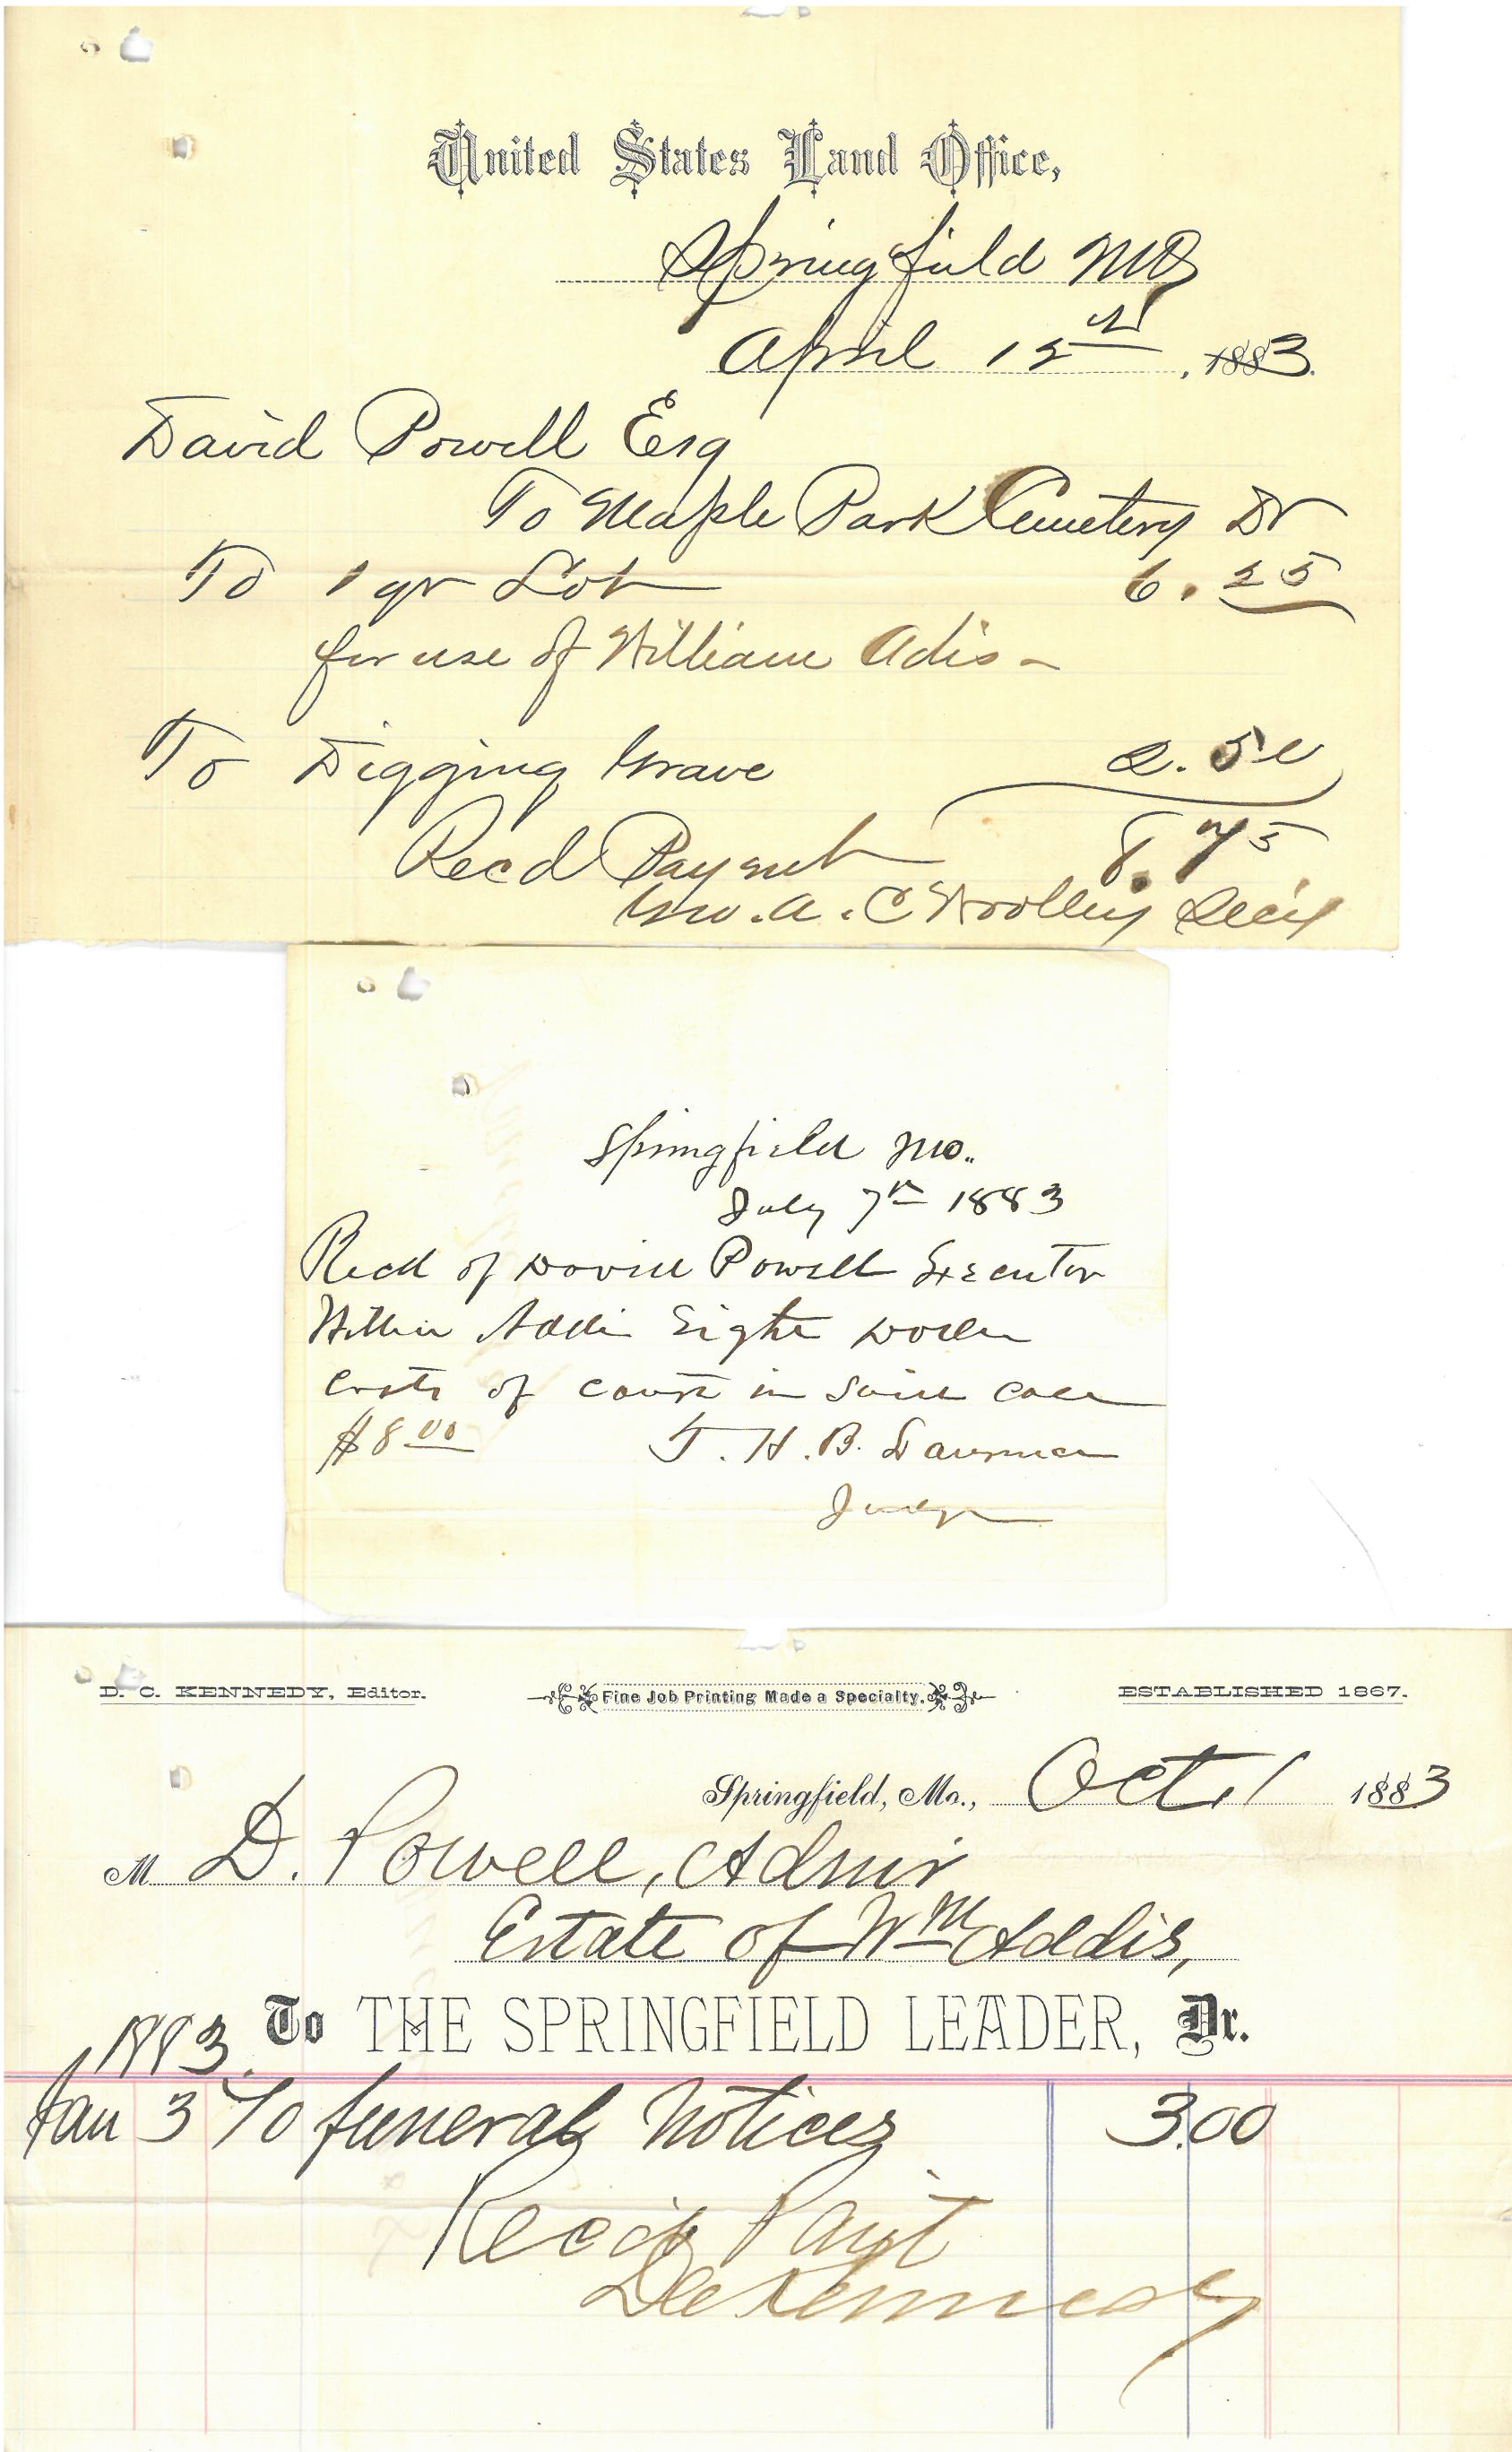 United States Land Office,
Springfield Mo
April 12th, 1883.
David Powell Esq
To Maple Park Cemetery Dr
To 1 qr Lot 6.25
for use of William Adis -
To Digging Grave 2.50
Recd Paymt 8.75
Geo. A. C. Woolley Secy
Springfield Mo.
July 7th 1883
Recd of David Powell Executor
Addis Eight Dollars
Costs of court in said case
$8.00 T. H. B.
Judge
D. C. KENNEDY, Editor. Fine Job Printing Made a Specialty. ESTABLISHED 1867.
Springfield, Mo., Oct 1 1883
M D. Powell, Admr
Estate of Wm Addis,
1883. To THE SPRINGFIELD LEADER, Dr.
Jan 3 To funeral Notices 3.00
Recd Paymt
D C Kennedy